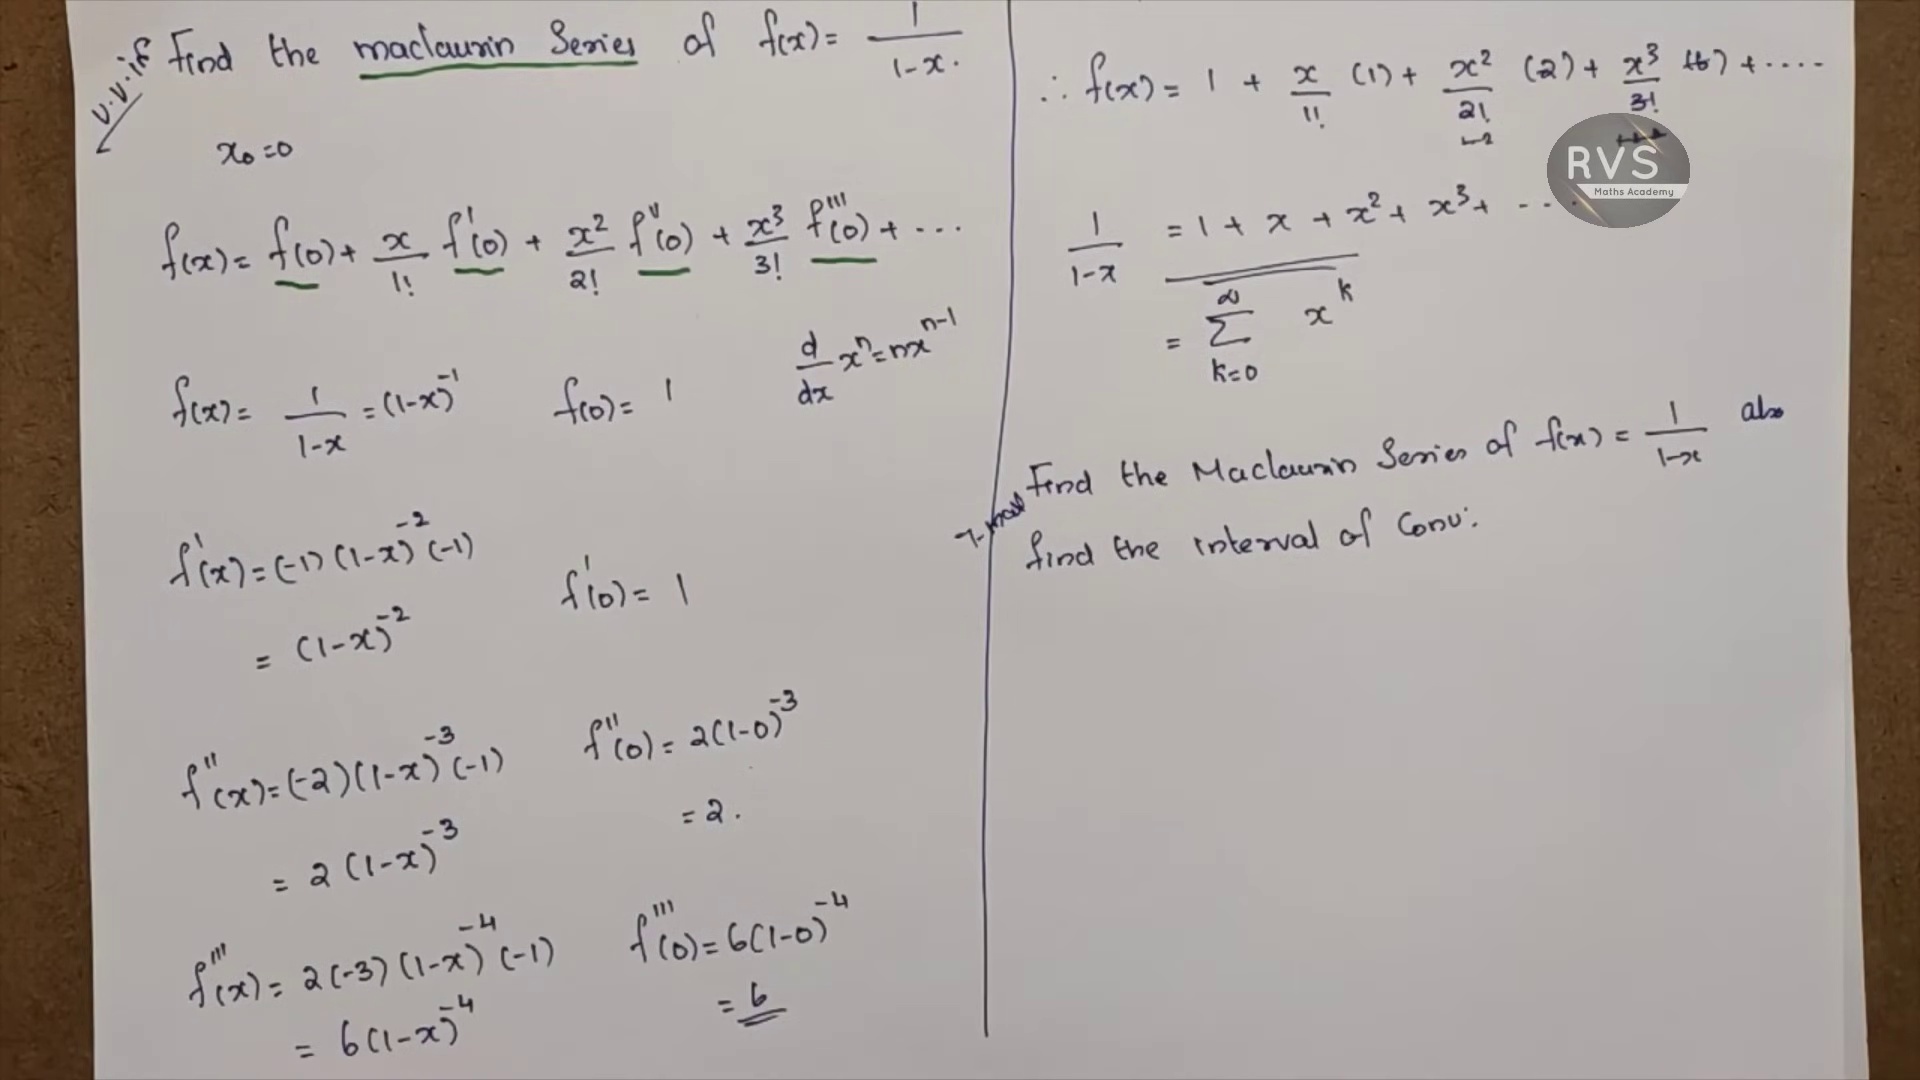 v.v.if Find the maclaurin Series of f(x)= 1/1-x.
x₀=0
f(x)= f(0)+ x/1! f'(0) + x²/2! f''(0) + x³/3! f'''(0) + ...
f(x)= 1/1-x = (1-x)⁻¹ f(0)= 1 d/dx xⁿ=nxⁿ⁻¹
f'(x)=(-1)(1-x)⁻²(-1)
= (1-x)⁻² f'(0)= 1
f''(x)=(-2)(1-x)⁻³(-1) f''(0)= 2(1-0)⁻³
= 2(1-x)⁻³ = 2.
f'''(x)= 2(-3)(1-x)⁻⁴(-1) f'''(0)= 6(1-0)⁻⁴
= 6(1-x)⁻⁴ = 6
∴ f(x)= 1 + x/1! (1)+ x²/2! (2)+ x³/3! (6)+....
RVS
Maths Academy
1/1-x = 1 + x + x²+ x³+ ....
= ∑ₖ₌₀^∞ xᵏ
Find the Maclaurin Series of f(x)= 1/1-x also
find the interval of Conv: